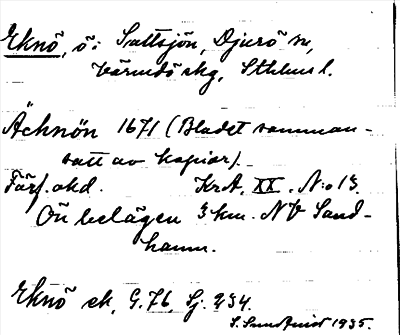 Eknö, ö i Saltsjön, Djurö sn,
Värmdö skg, Sthlms l.
Äcknön 1671 (Bladet samman-
satt av kopior).
Förf. okd. KrA, XX, N:o 13.
Ön belägen 3 km. NV Sand-
hamn.
Eknö ek, G. 76, Sj. 234.
S. Sundqvist 1935.